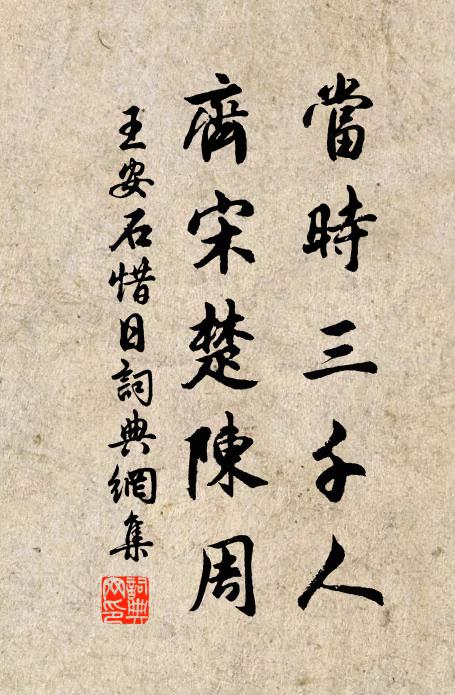 當時三千人
齊宋楚陳周
王安石惜日詞典網集
詞典
网印